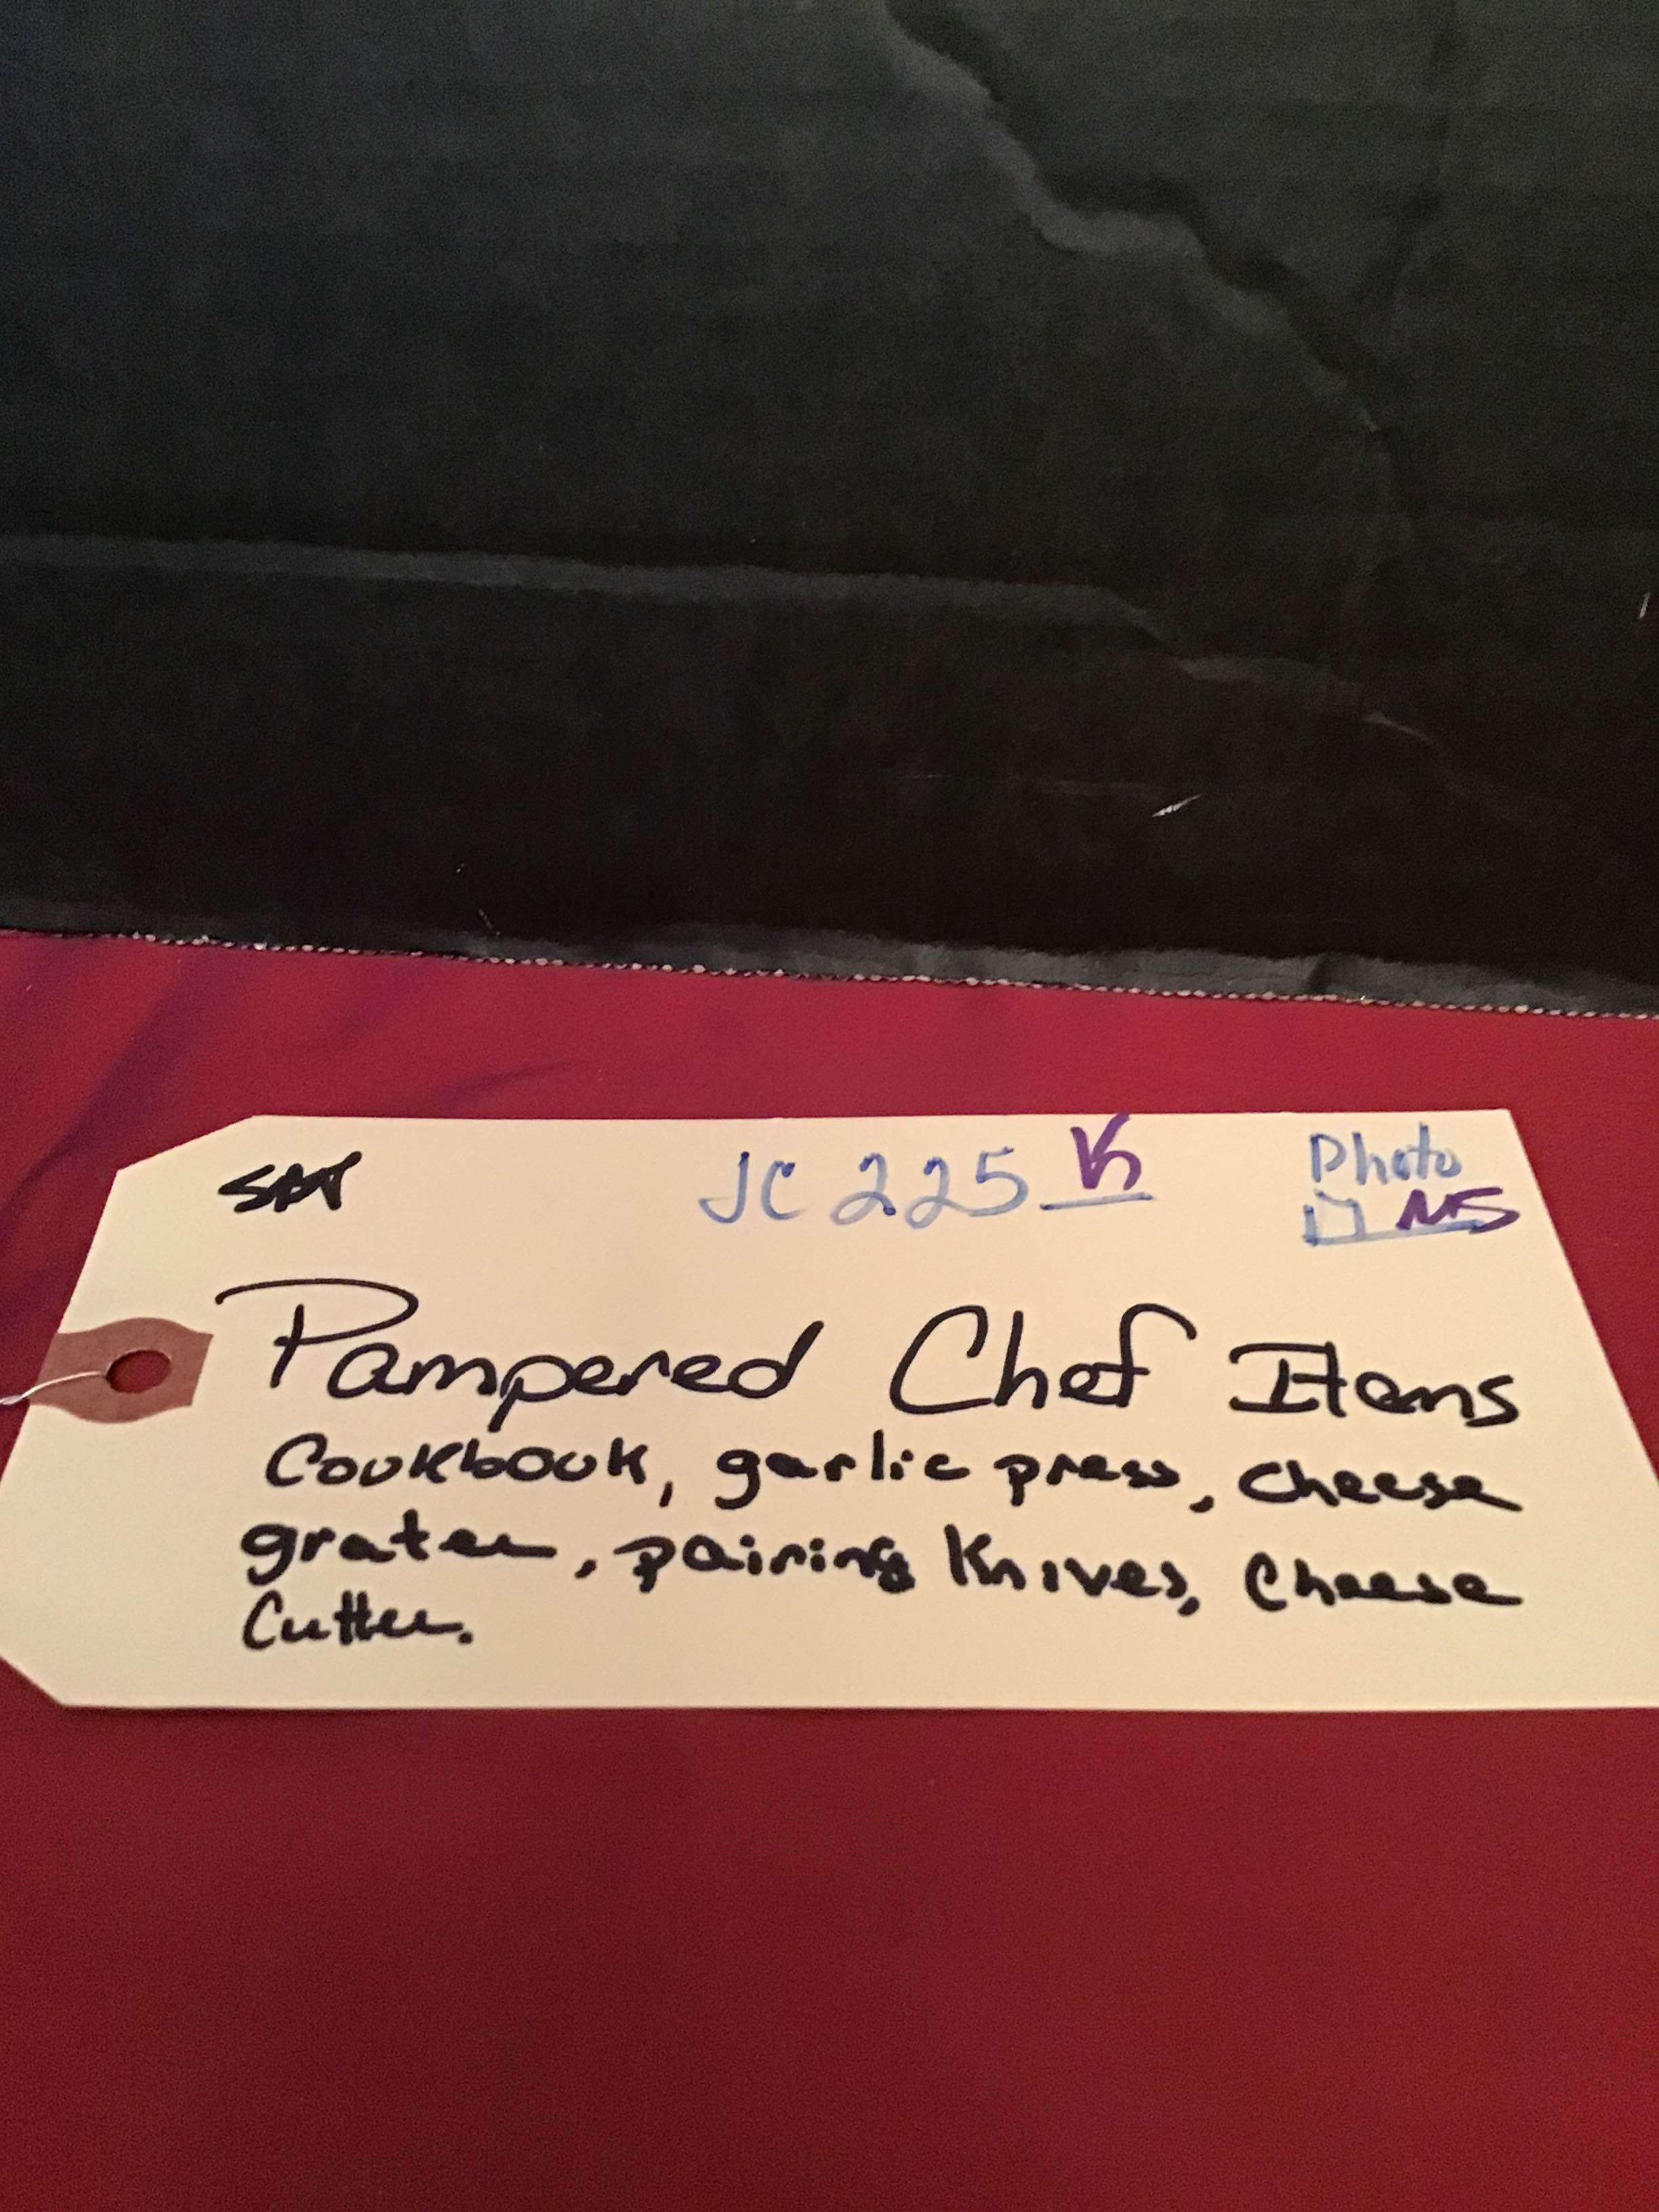 SAT JC 225 K Photo
NS
Pampered Chef Items
Cookbook, garlic press, cheese
grater, pairing Knives, Cheese
Cutter.